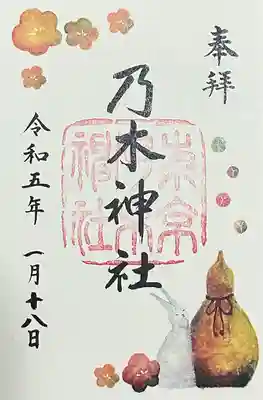 奉拝
乃木神社
東京
神社
令和五年 一月十八日